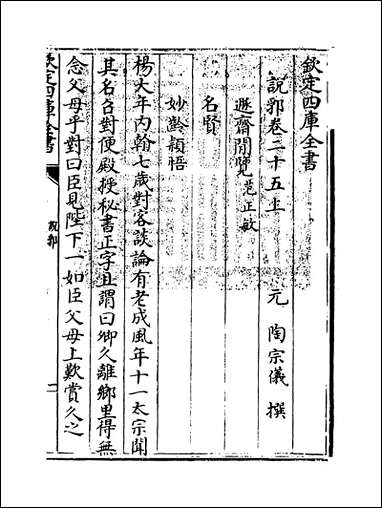 欽定四庫全書
說郛卷二十五上
元 陶宗儀 撰
遯齋閒覽 范正敏
名賢
妙齡穎悟
楊大年內翰七歲對客談論有老成風年十一太宗聞
其名召對便殿授秘書正字且謂曰卿久離鄉里得無
念父母乎對曰臣見陛下一如臣父母上歎賞久之
欽定四庫全書
說郛